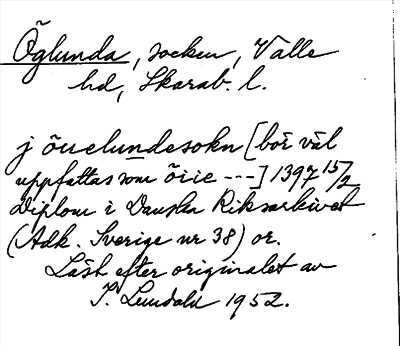 Öglunda, socken, Valle
hd, Skarab. l.
j öuelundesokn [bör väl
uppfattas som öiie ---] 1397 15/2
Diplom i Danska Riksarkivet
(Adk. Sverige nr 38) or.
Läst efter originalet av
J. Lundahl 1952.